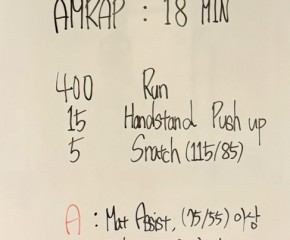 AMRAP : 18 MIN
400 Run
15 Handstand Push up
5 Snatch (115/85)
A : Mat Assist, (75/55) 이상